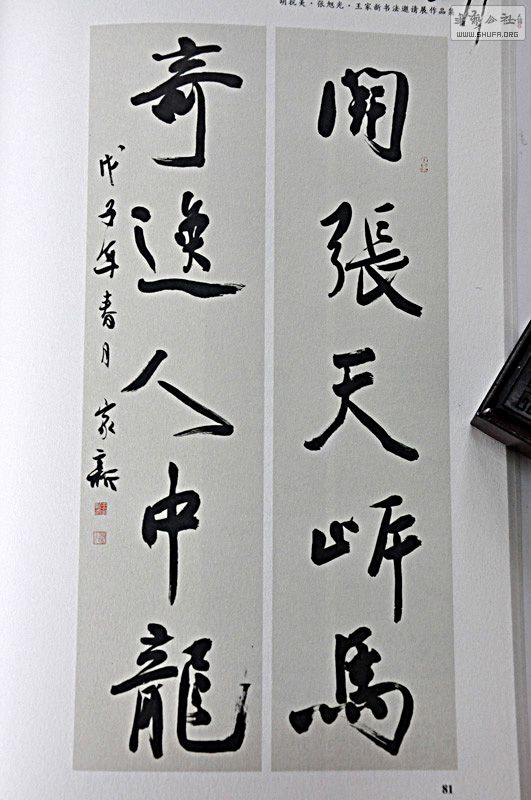 胡抗美·张旭光·王家新书法邀请展作品集
书法公社
WWW.SHUFA.ORG
開張天岸馬
奇逸人中龍
戊子年春月 家新
81